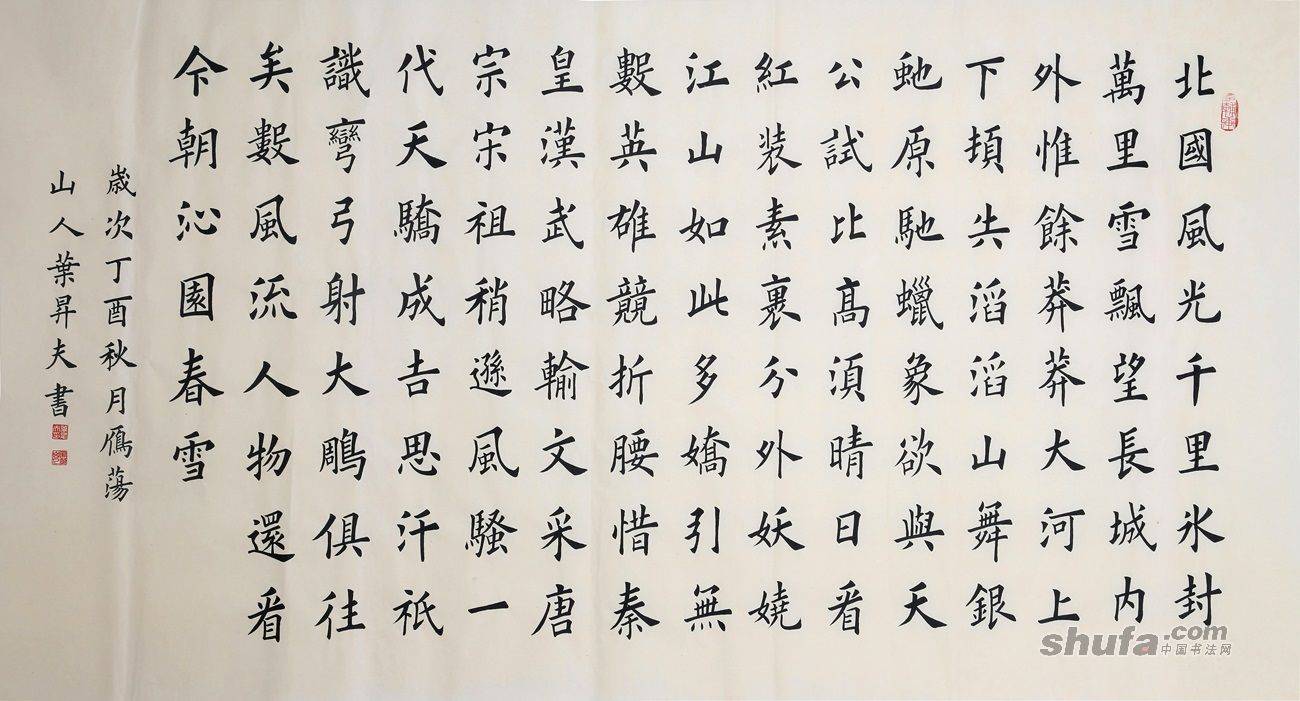 北國風光千里氷封
萬里雪飄望長城内
外惟餘莽莽大河上
下頓失滔滔山舞銀
虵原馳蠟象欲與天
公試比高須晴日看
紅装素裹分外妖嬈
江山如此多嬌引無
數英雄競折腰惜秦
皇漢武略輸文采唐
宗宋祖稍遜風騷一
代天驕成吉思汗祇
識彎弓射大鵰俱往
矣數風流人物還看
今朝沁園春雪
歲次丁酉秋月鴈蕩
山人葉昇夫書
shufa.com
中国书法网